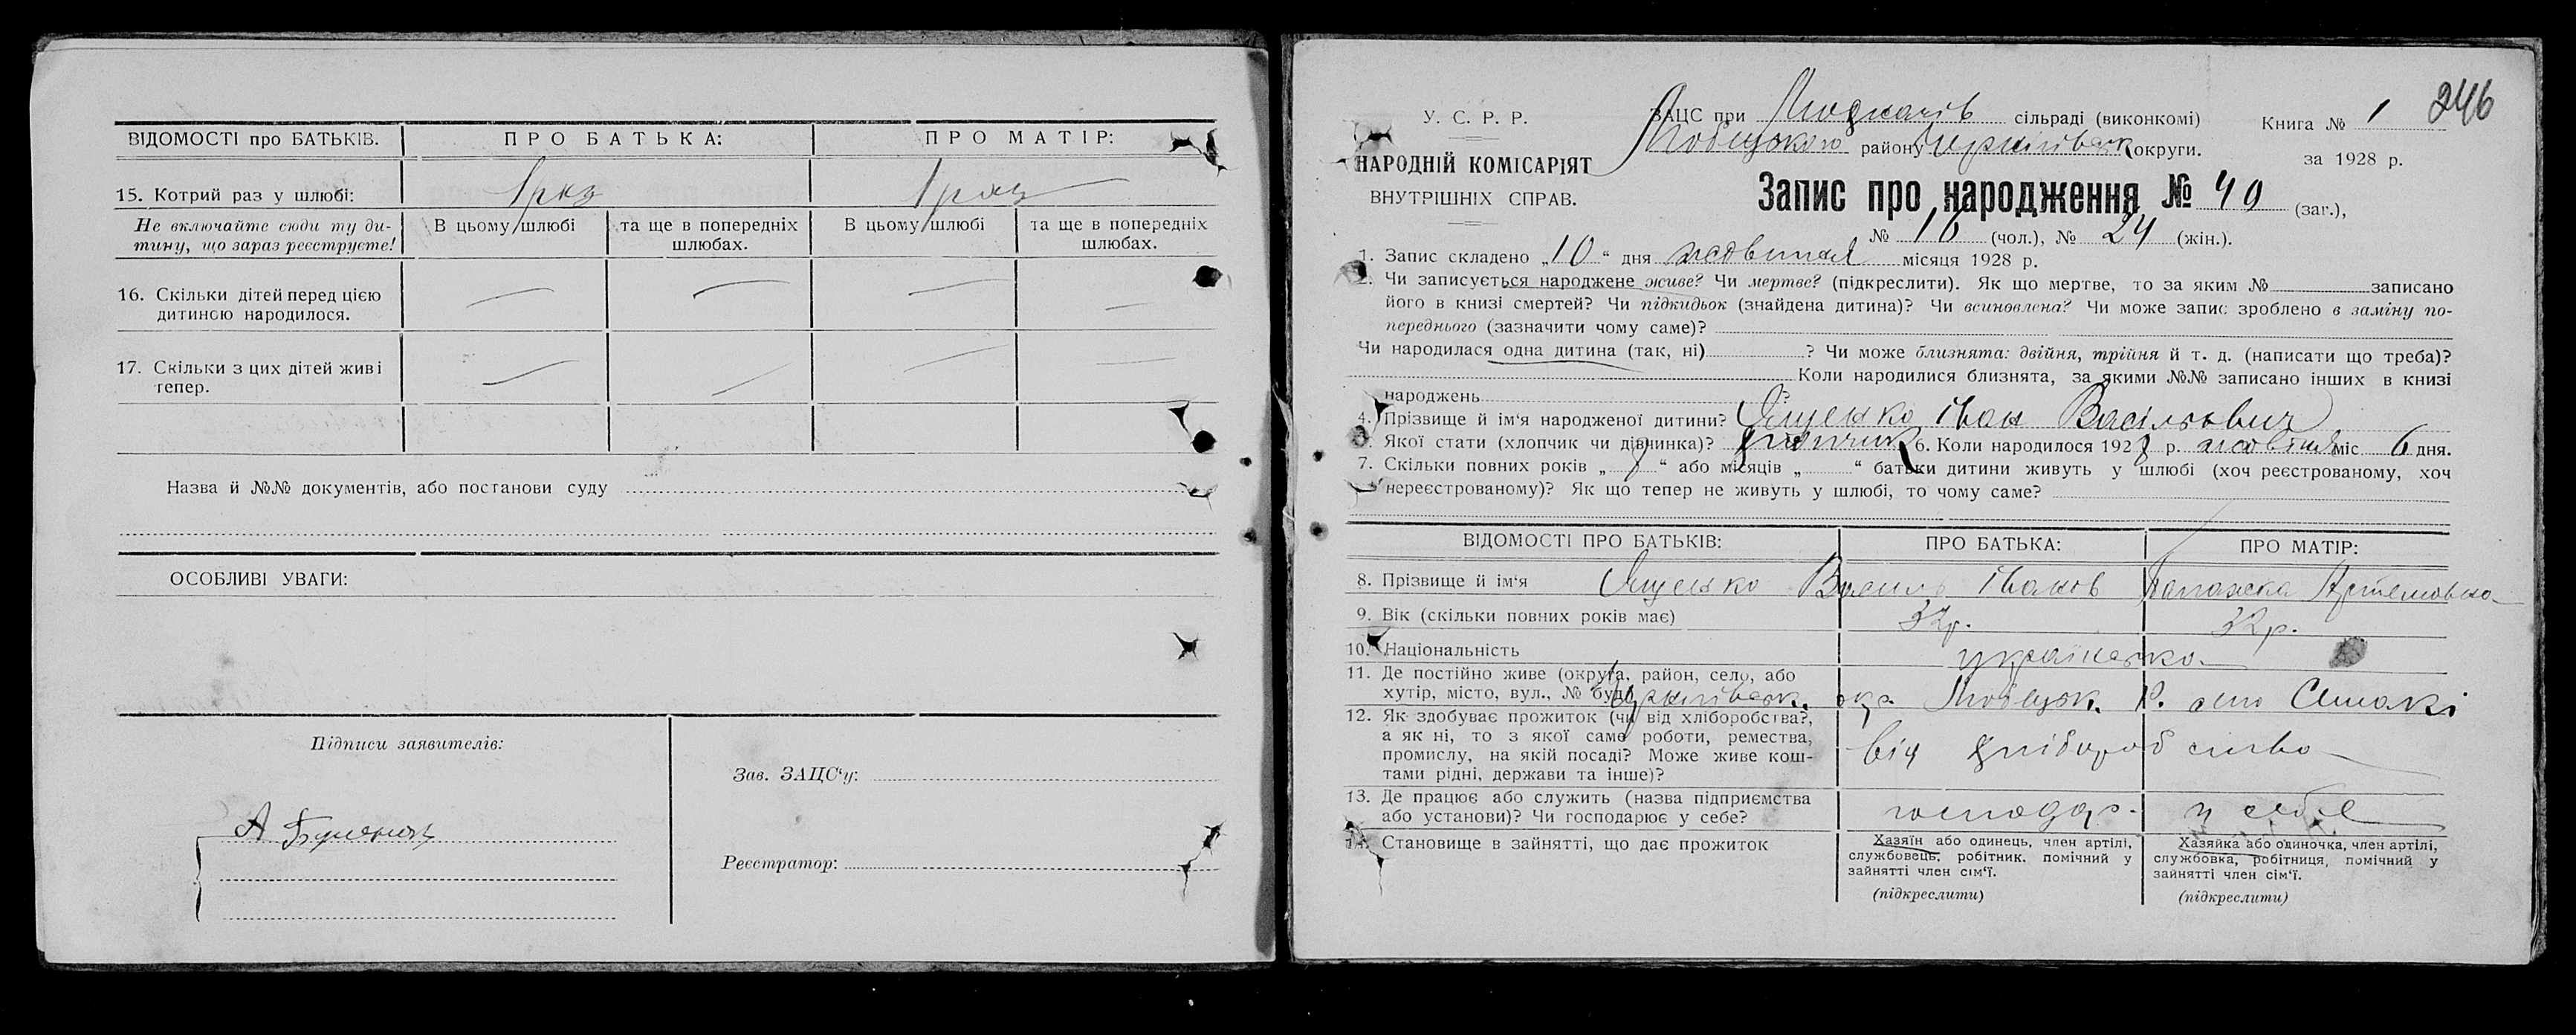 ВІДОМОСТІ про БАТЬКІВ. ПРО БАТЬКА: ПРО МАТІР:
15. Котрий раз у шлюбі: 1 раз 1 раз
Не включайте сюди ту ди- В цьому шлюбі та ще в попередніх В цьому шлюбі та ще в попередніх
тину, що зараз реєструєте! шлюбах. шлюбах.
16. Скільки дітей перед цією — — — —
дитиною народилося.
17. Скільки з цих дітей живі — — — —
тепер.
Назва й №№ документів, або постанови суду
ОСОБЛИВІ УВАГИ:
Підписи заявителів:
Зав. ЗАЦС‘у:
А
Реєстратор:
246
У. С. Р. Р. ЗАЦС при сільраді (виконкомі) Книга № 1
Любецького району Чернігівськ округи.
НАРОДНІЙ КОМІСАРІЯТ за 1928 р.
ВНУТРІШНІХ СПРАВ. Запис про народження № 40 (заг.),
№ 16 (чол.), № 24 (жін.).
1. Запис складено „10“ дня жовтня місяця 1928 р.
2. Чи записується народжене живе? Чи мертве? (підкреслити). Як що мертве, то за яким № записано
його в книзі смертей? Чи підкидьок (знайдена дитина)? Чи всиновлена? Чи може запис зроблено в заміну по-
переднього (зазначити чому саме)?
Чи народилася одна дитина (так, ні) ? Чи може близнята: двійня, трійня й т. д. (написати що треба)?
Коли народилися близнята, за якими №№ записано інших в книзі
народжень ?
4. Прізвище й ім‘я народженої дитини? Ященко Іван Васільович
5. Якої стати (хлопчик чи дівчинка)? хлопчик 6. Коли народилося 1928 р. жовтня міс. 6 дня.
7. Скільки повних років „ “ або місяців „ “ батьки дитини живуть у шлюбі (хоч реєстрованому, хоч
нереєстрованому)? Як що тепер не живуть у шлюбі, то чому саме?
ВІДОМОСТІ ПРО БАТЬКІВ: ПРО БАТЬКА: ПРО МАТІР:
8. Прізвище й ім‘я Ященко Василь Іванов Палажка Артемовна
9. Вік (скільки повних років має) 32р. 32р.
10. Національність українська
11. Де постійно живе (округа, район, село, або
хутір, місто, вул., № буд. Чернігівськ. окр. Любецьк. Р. село Семакі
12. Як здобуває прожиток (чи від хліборобства?,
а як ні, то з якої саме роботи, ремества, від хліборобства
промислу, на якій посаді? Може живе кош-
тами рідні, держави та інше)?
13. Де працює або служить (назва підприємства
або установи)? Чи господарює у себе? господар. у себе
14. Становище в зайнятті, що дає прожиток Хазяїн або одинець, член артілі, Хазяйка або одиночка, член артілі,
службовець, робітник, помічний у службовка, робітниця, помічний у
зайнятті член сім‘ї. зайнятті член сім‘ї.
(підкреслити) (підкреслити)